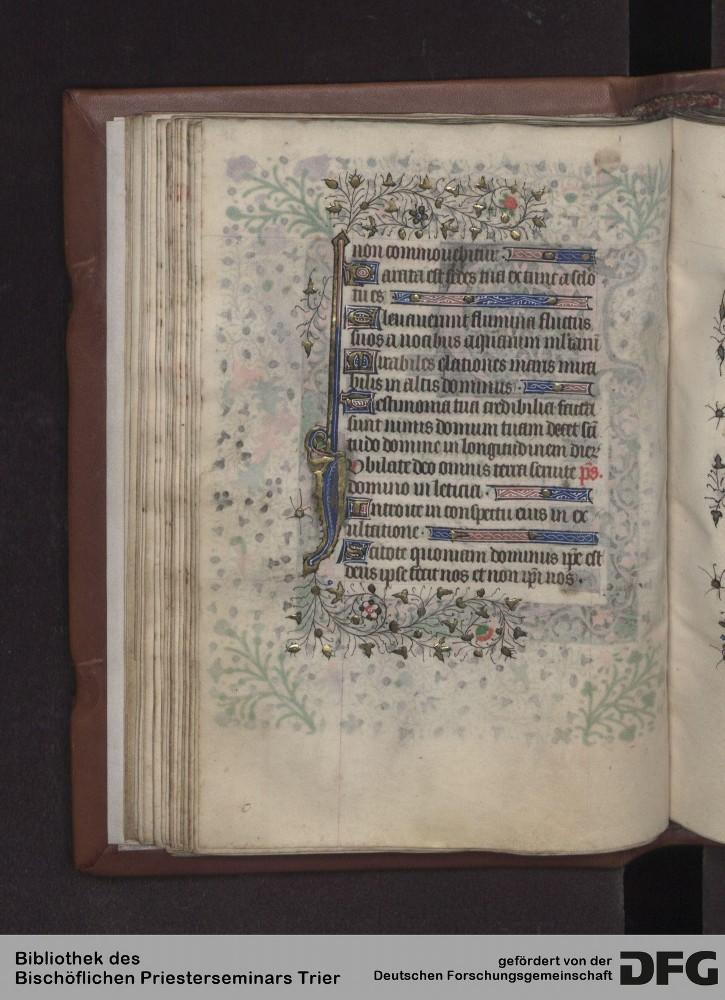 non commovebitur
Parata est sedes tua ex tunc a sclo
tu es
Elevaverunt flumina fluctus
suos a vocibus aquarum mltarū
Mirabiles elationes maris mira
bilis in altis dominus
Testimonia tua credibilia facta
sunt nimis domum tuam decet scā
tudo domine in longitudinem dier
Jubilate deo omnis terra servite ps.
domino in leticia.
Introite in conspectu eius in ex
ultatione.
Scitote quoniam dominus ipē est
deus ipse fecit nos et non ipi nos.
Bibliothek des
Bischöflichen Priesterseminars Trier
gefördert von der
Deutschen Forschungsgemeinschaft
DFG